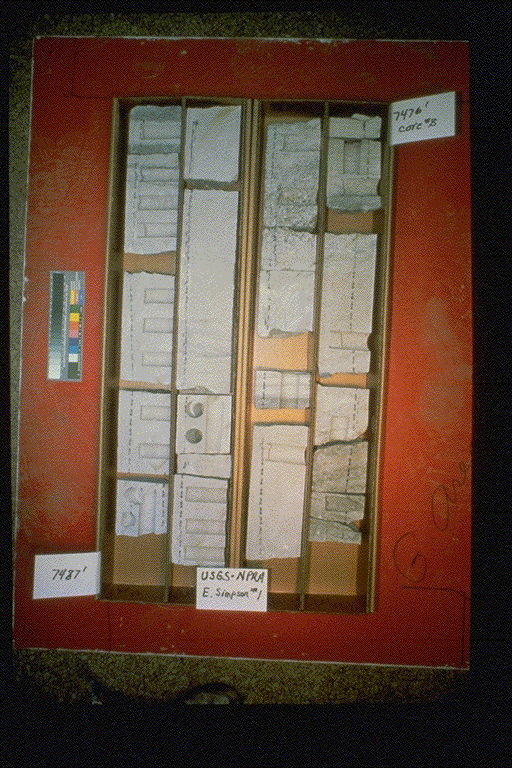 7476'
core #3
7487'
USGS-NPRA
E. Simpson #1